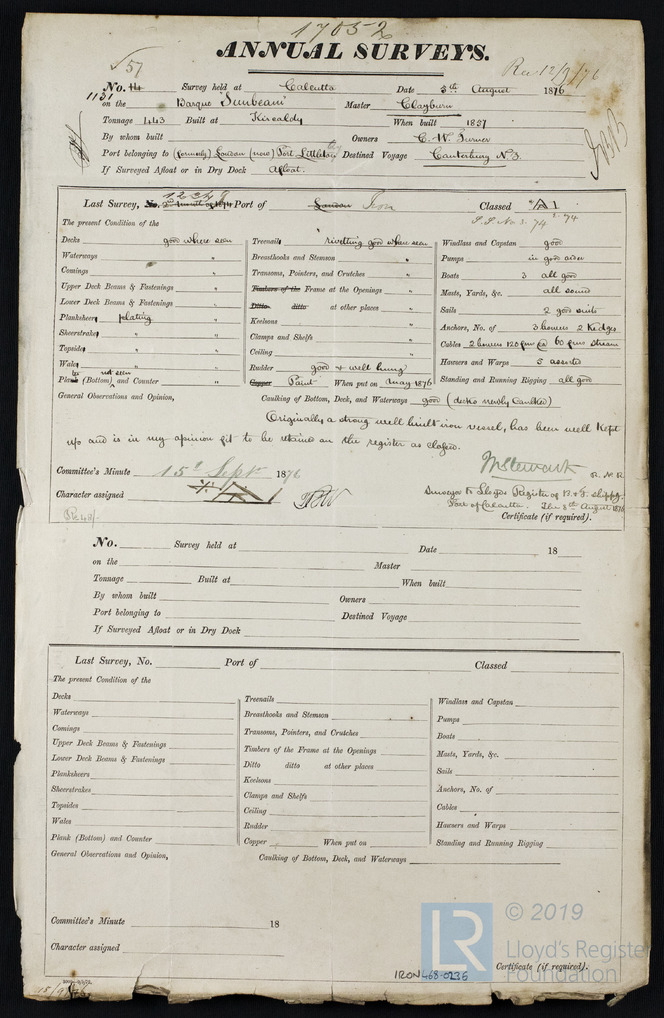 17052
ANNUAL SURVEYS.
√57
Rec 12/9/76
No. 14 Survey held at Calcutta Date 3th August 1876
1131 on the Barque Sunbeam Master Clayburn
Tonnage 443 Built at Kircaldy When built 1857
By whom built Owners C. W. Turner
Port belonging to (formerly) London (now) Port Littleton Destined Voyage Canterbury N.Z.
If Surveyed Afloat or in Dry Dock Afloat.
Last Survey, No. Port of London Iron Classed A1
S.S. No 3. 74
The present Condition of the
Decks good where seen
Waterways "
Comings "
Upper Deck Beams & Fastenings "
Lower Deck Beams & Fastenings "
Planksheers plating "
Sheerstrakes "
Topsides "
Wales "
Plank (Bottom) not seen and Counter "
Treenails rivetting good where seen
Breasthooks and Stemson "
Transoms, Pointers, and Crutches "
Timbers of the Frame at the Openings "
Ditto ditto at other places "
Keelsons "
Clamps and Shelfs "
Ceiling "
Rudder good & well hung
Copper Paint When put on May 1876
Windlass and Capstan good
Pumps in good order
Boats 3 all good
Masts, Yards, &c. all sound
Sails 2 good suits
Anchors, No. of 3 bowers 2 Kedges
Cables 2 bowers 120 fms 60 fms stream
Hawsers and Warps 5 assorted
Standing and Running Rigging all good
General Observations and Opinion, Caulking of Bottom, Deck, and Waterways good (decks newly Caulked)
Originally a strong well built iron vessel, has been well kept
up and is in my opinion fit to be retained on the register as classed.
Committee's Minute 15th Sept 1876
Character assigned A 1
Surveyor to Lloyds Register of B. & F. Shippg.
Port of Calcutta. The 8th August 1876
Certificate (if required).
No. Survey held at Date 18
on the Master
Tonnage Built at When built
By whom built Owners
Port belonging to Destined Voyage
If Surveyed Afloat or in Dry Dock
Last Survey, No. Port of Classed
The present Condition of the
Decks
Waterways
Comings
Upper Deck Beams & Fastenings
Lower Deck Beams & Fastenings
Planksheers
Sheerstrakes
Topsides
Wales
Plank (Bottom) and Counter
Treenails
Breasthooks and Stemson
Transoms, Pointers, and Crutches
Timbers of the Frame at the Openings
Ditto ditto at other places
Keelsons
Clamps and Shelfs
Ceiling
Rudder
Copper When put on
Windlass and Capstan
Pumps
Boats
Masts, Yards, &c.
Sails
Anchors, No. of
Cables
Hawsers and Warps
Standing and Running Rigging
General Observations and Opinion, Caulking of Bottom, Deck, and Waterways
Committee's Minute 18
Character assigned
Certificate (if required).
LR © 2019
Lloyd's Register
Foundation
IRON468-0236